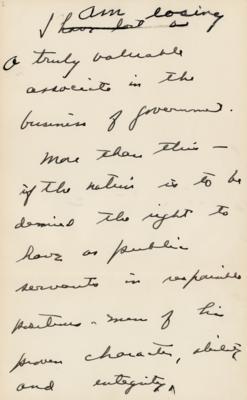 am losing
I have lost a
a truly valuable
associate in the
business of government.
More than this –
if the nation is to be
denied the right to
have as public
servants in responsible
positions – men of his
proven character, ability
and integrity